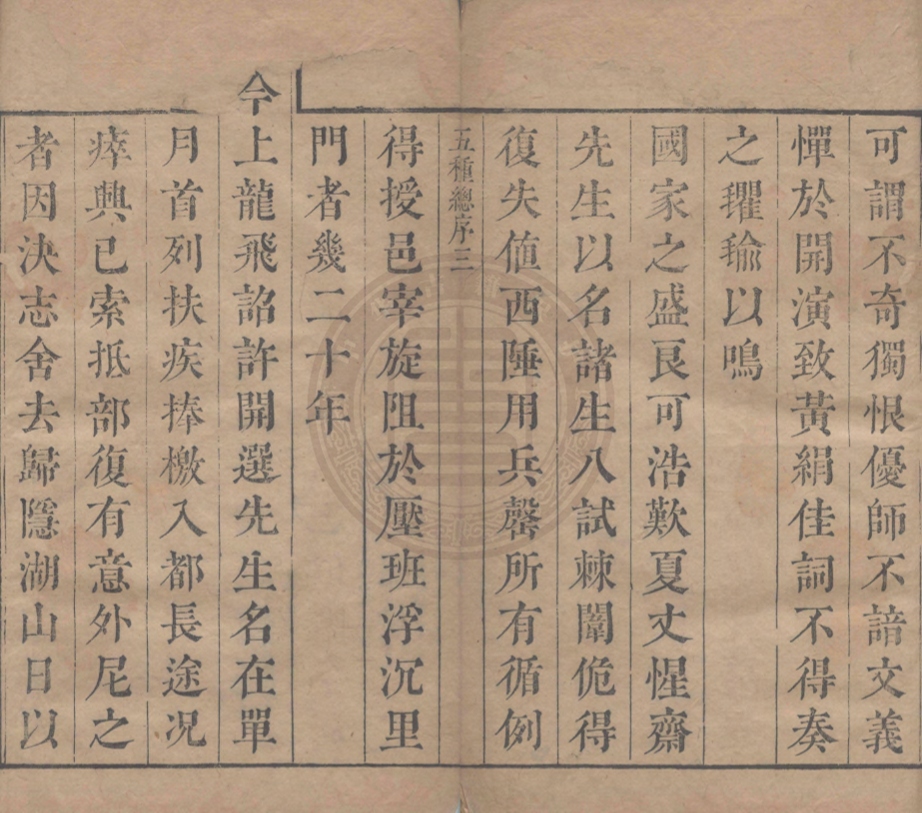 可謂不奇獨恨優師不諳文義
憚於開演致黃絹佳詞不得奏
之瓘瑜以鳴
國家之盛良可浩歎夏丈惺齋
先生以名諸生八試棘闈佹得
復失値西陲用兵罄所有循例
五種總序三
得授邑宰旋阻於壓班浮沉里
門者幾二十年
今上龍飛詔許開選先生名在單
月首列扶疾捧檄入都長途况
瘁興已索抵部復有意外尼之
者因決志舍去歸隱湖山日以